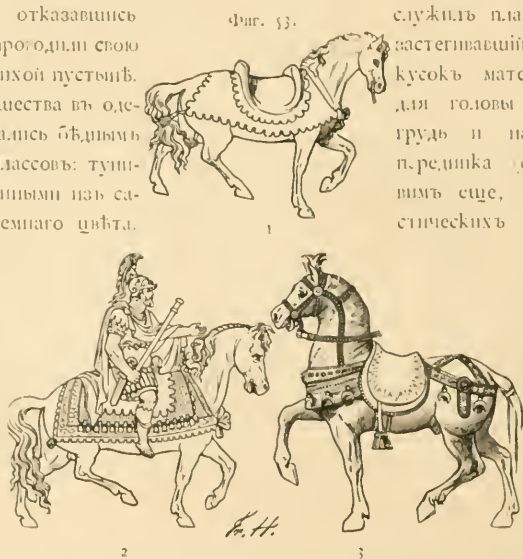 отказавшись
свою
пустынѣ.
щества въ оде-
ались бѣднымъ
лассовъ: туни-
нными изъ са-
емнаго цвѣта.
Фиг. 53.
служилъ пла
застегивавшій
кусокъ мате
для головы
грудь и на
вимъ еще,
стическихъ
1
2
3
Fr. H.